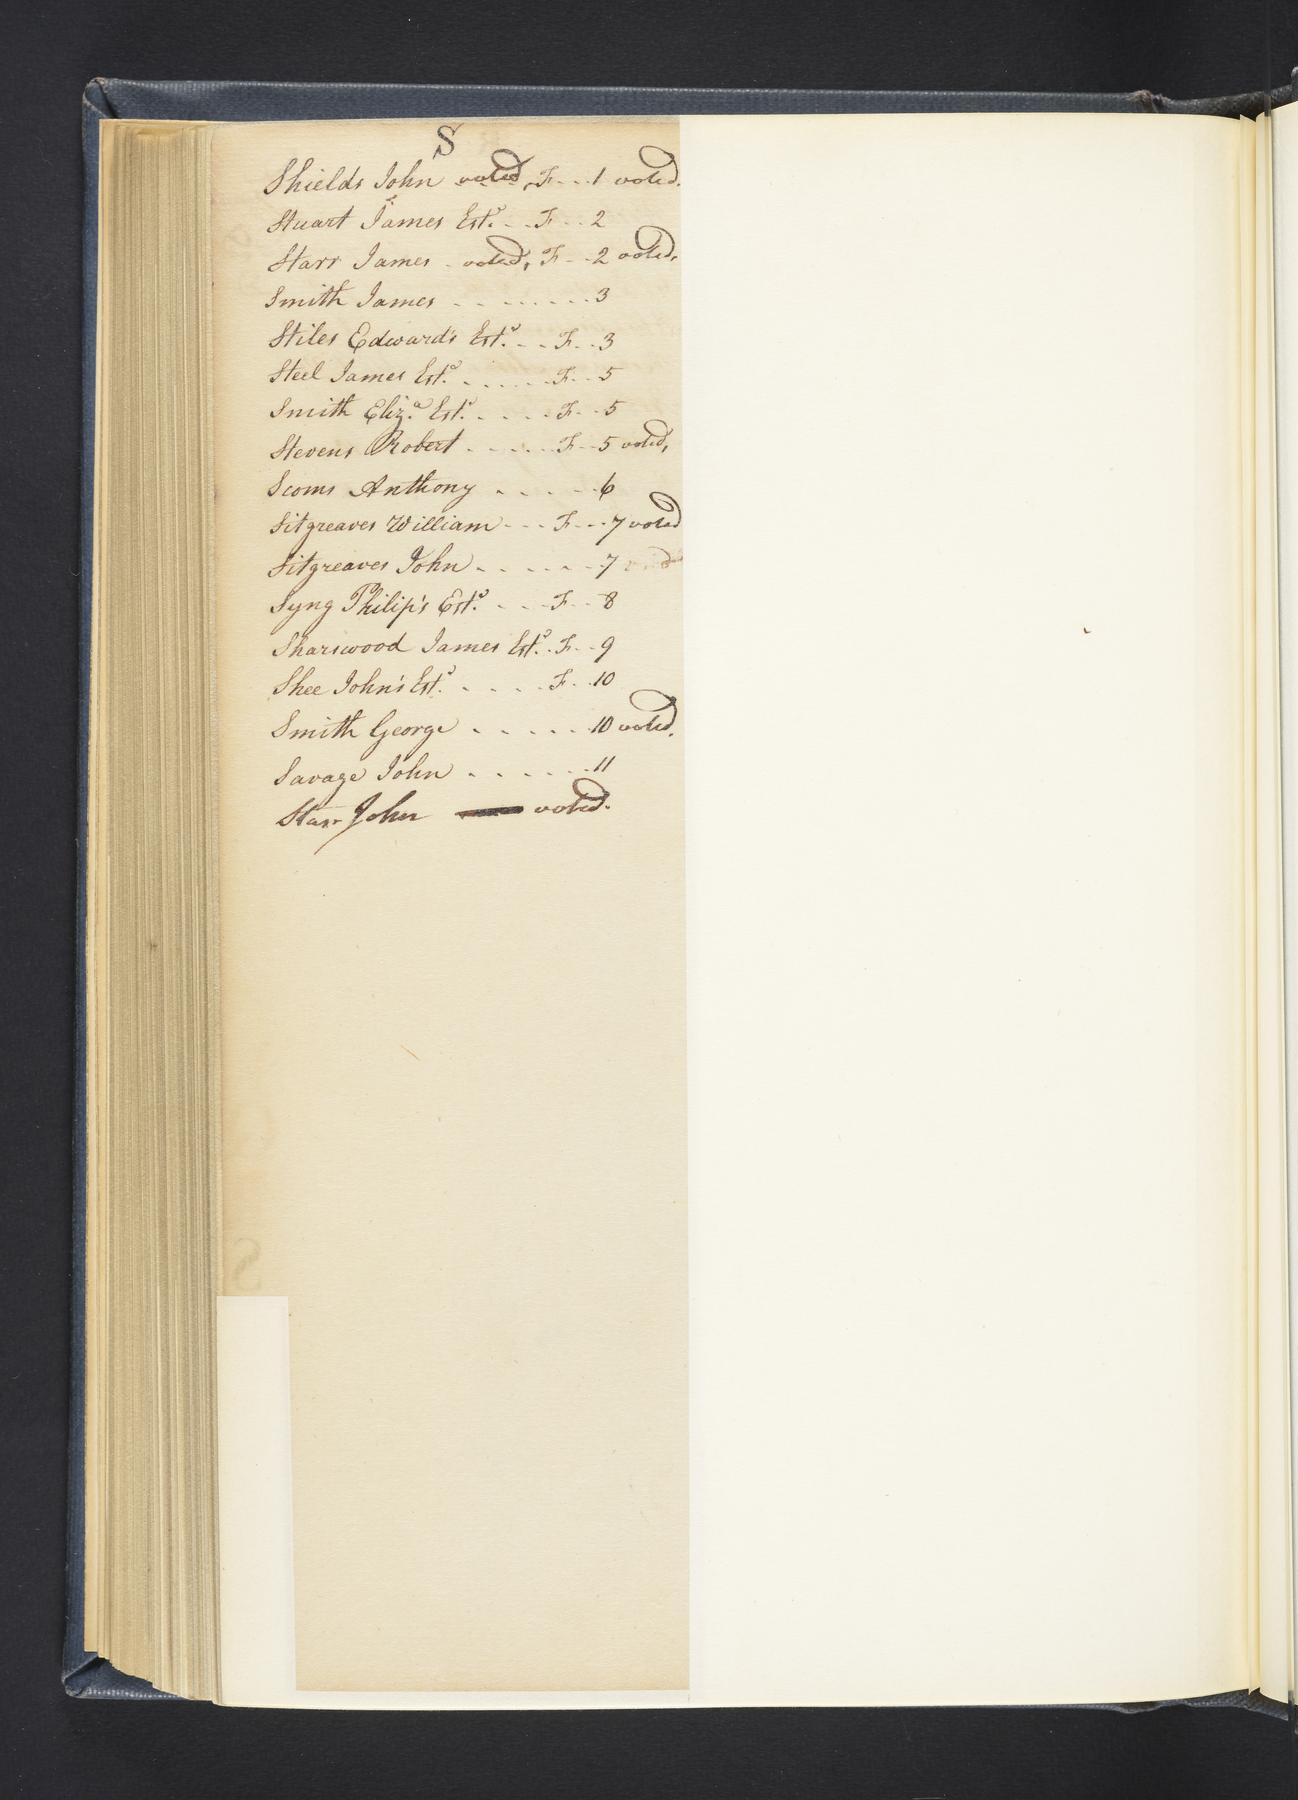 S
Shields John voted, F - - - 1 voted.
Stuart James Est.e - - F - - 2
Starr James - voted, F - - 2 voted,
Smith James - - - - - - - 3
Stiles Edward's Est.e - - F - - 3
Steel James Est.e - - - - - F - - 5
Smith Eliz.a Est.e - - - - F - - 5
Stevens Robert - - - - - F - - 5 voted,
Scoms Anthony - - - - - 6
Sitgreaves William - - - F - - - 7 voted
Sitgreaves John - - - - - - 7
Syng Philip's Est.e - - - F - - 8
Sharswood James Est.e - F - - 9
Shee John's Est.e - - - - F - - 10
Smith George - - - - - 10 voted.
Savage John - - - - - - 11
Starr John voted.